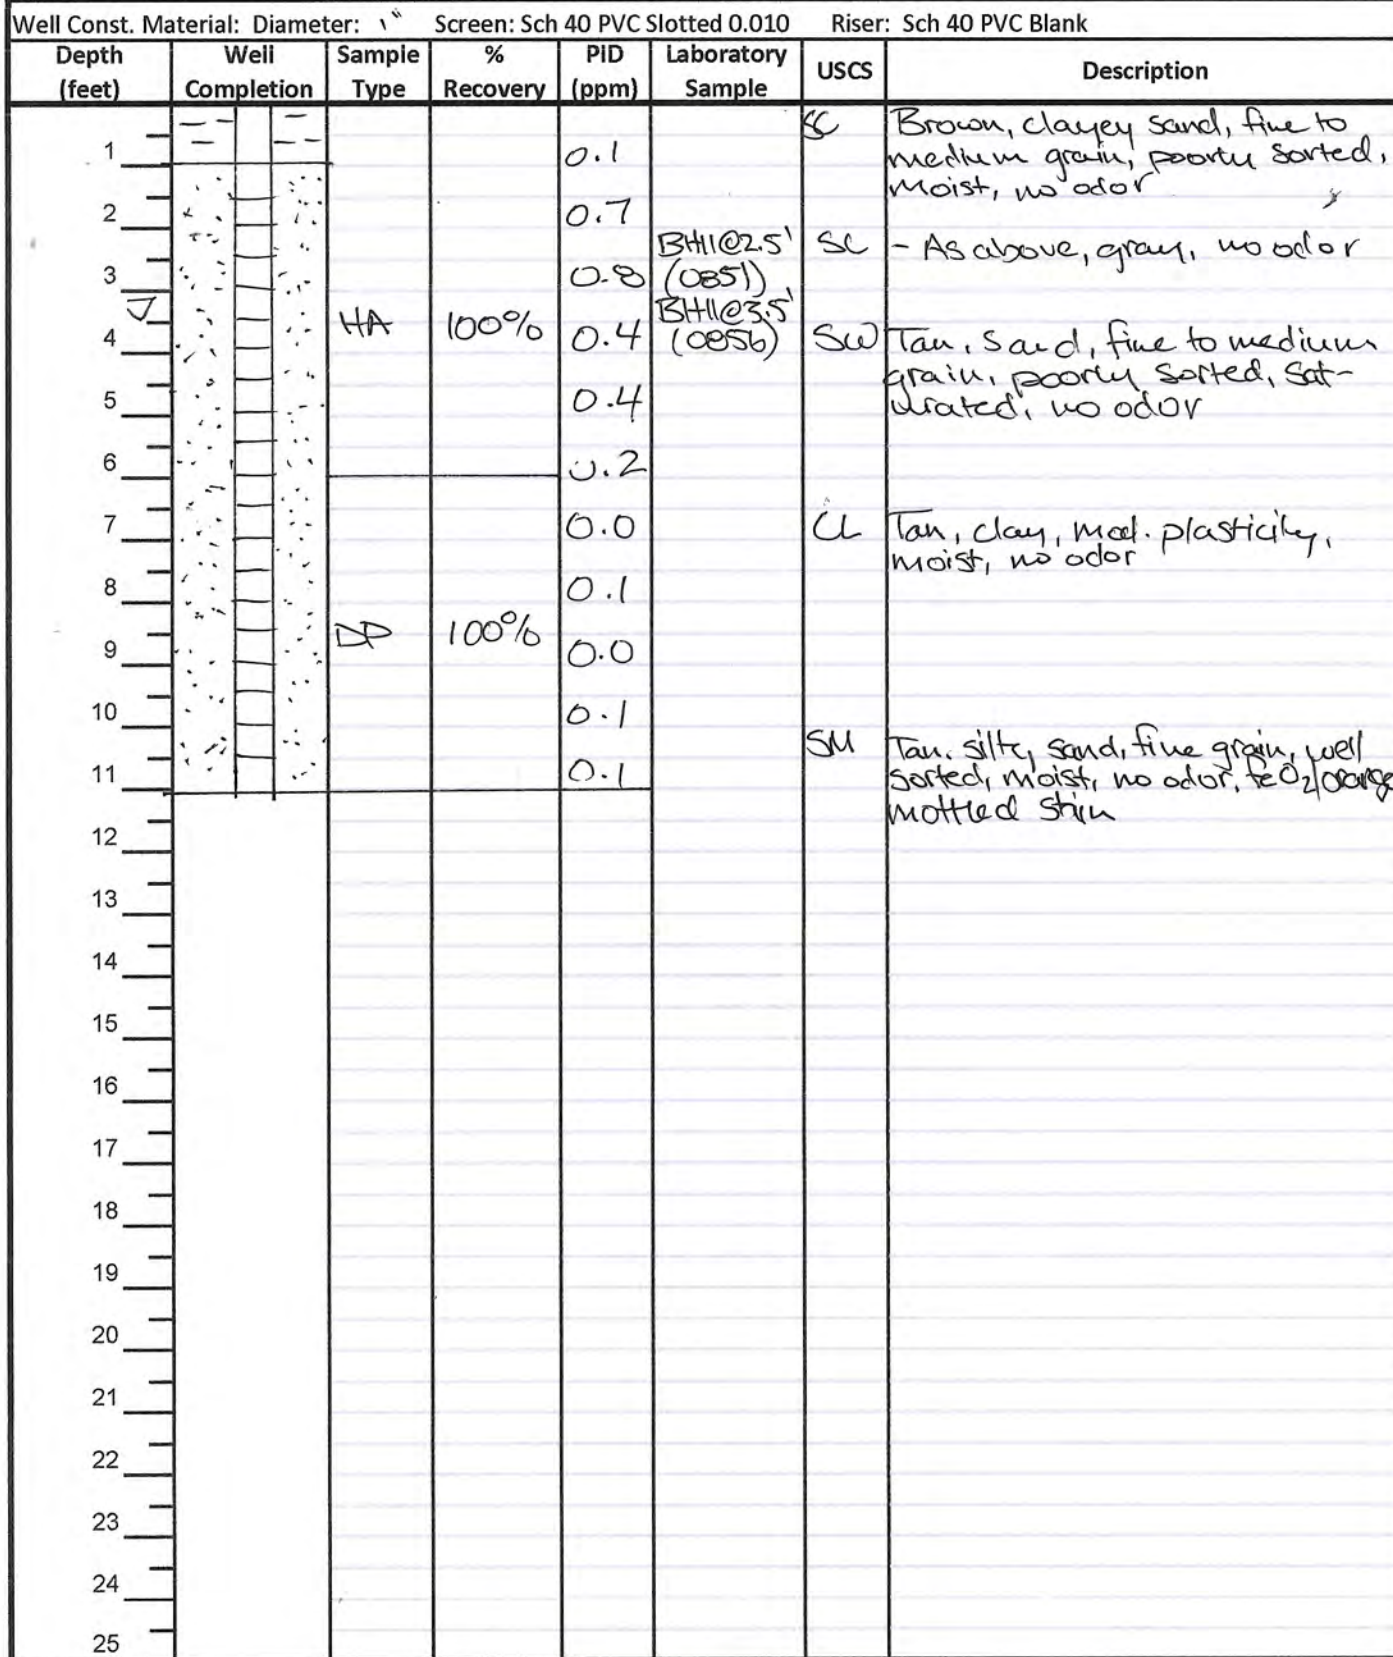 Well Const. Material: Diameter: 1" Screen: Sch 40 PVC Slotted 0.010 Riser: Sch 40 PVC Blank
Depth (feet) Well Completion Sample Type % Recovery PID (ppm) Laboratory Sample USCS Description
SC Brown, clayey sand, fine to
1 0.1 medium grain, poorly sorted,
moist, no odor
2 0.7
BH11@2.5' SC - As above, gray, no odor
3 0.8 (0851)
BH11@3.5'
4 HA 100% 0.4 (0856) SW Tan, sand, fine to medium
grain, poorly sorted, sat-
5 0.4 urated, no odor
6 0.2
7 0.0 CL Tan, clay, mod. plasticity,
moist, no odor
8 0.1
9 DP 100% 0.0
10 0.1
SM Tan, silty, sand, fine grain, well
11 0.1 sorted, moist, no odor, feO2/orange
mottled
12
13
14
15
16
17
18
19
20
21
22
23
24
25